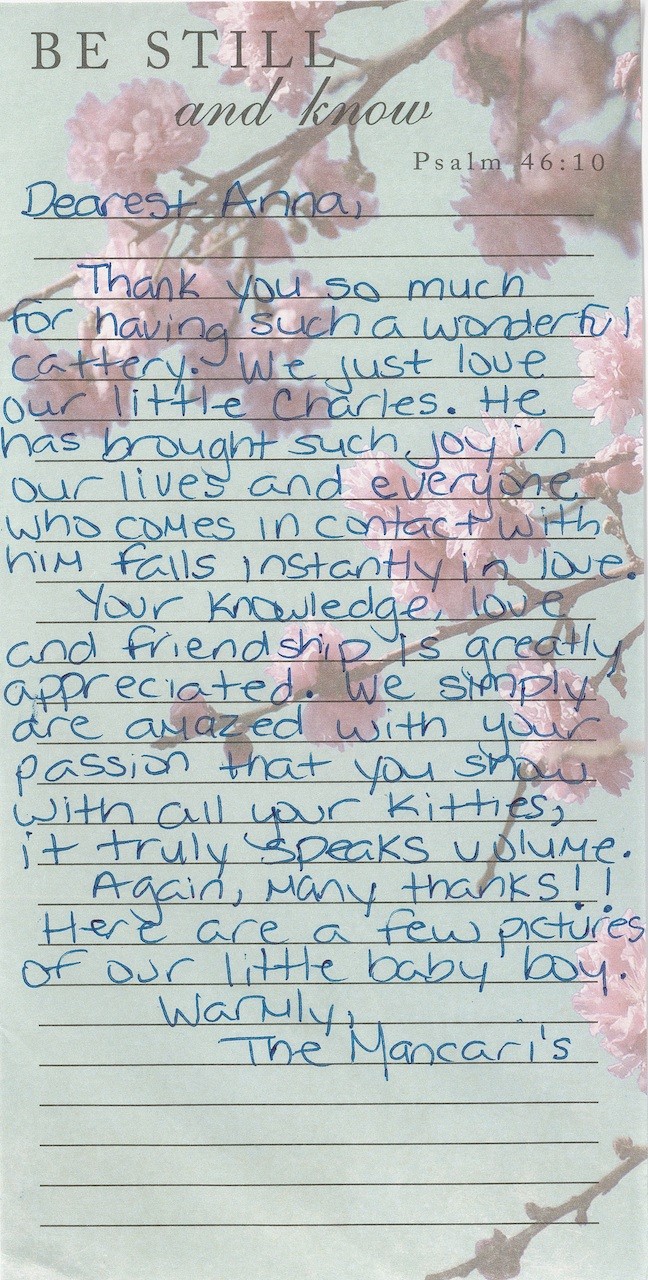 BE STILL
and know
Psalm 46:10
Dearest Anna,
Thank you so much
for having such a wonderful
cattery. We just love
our little Charles. He
has brought such joy in
our lives and everyone
who comes in contact with
him falls instantly in love.
Your knowledge, love
and friendship is greatly
appreciated. We simply
are amazed with your
passion that you show
with all your kitties,
it truly speaks volume.
Again, many thanks!!
Here are a few pictures
of our little baby boy.
Warmly,
The Mancari's